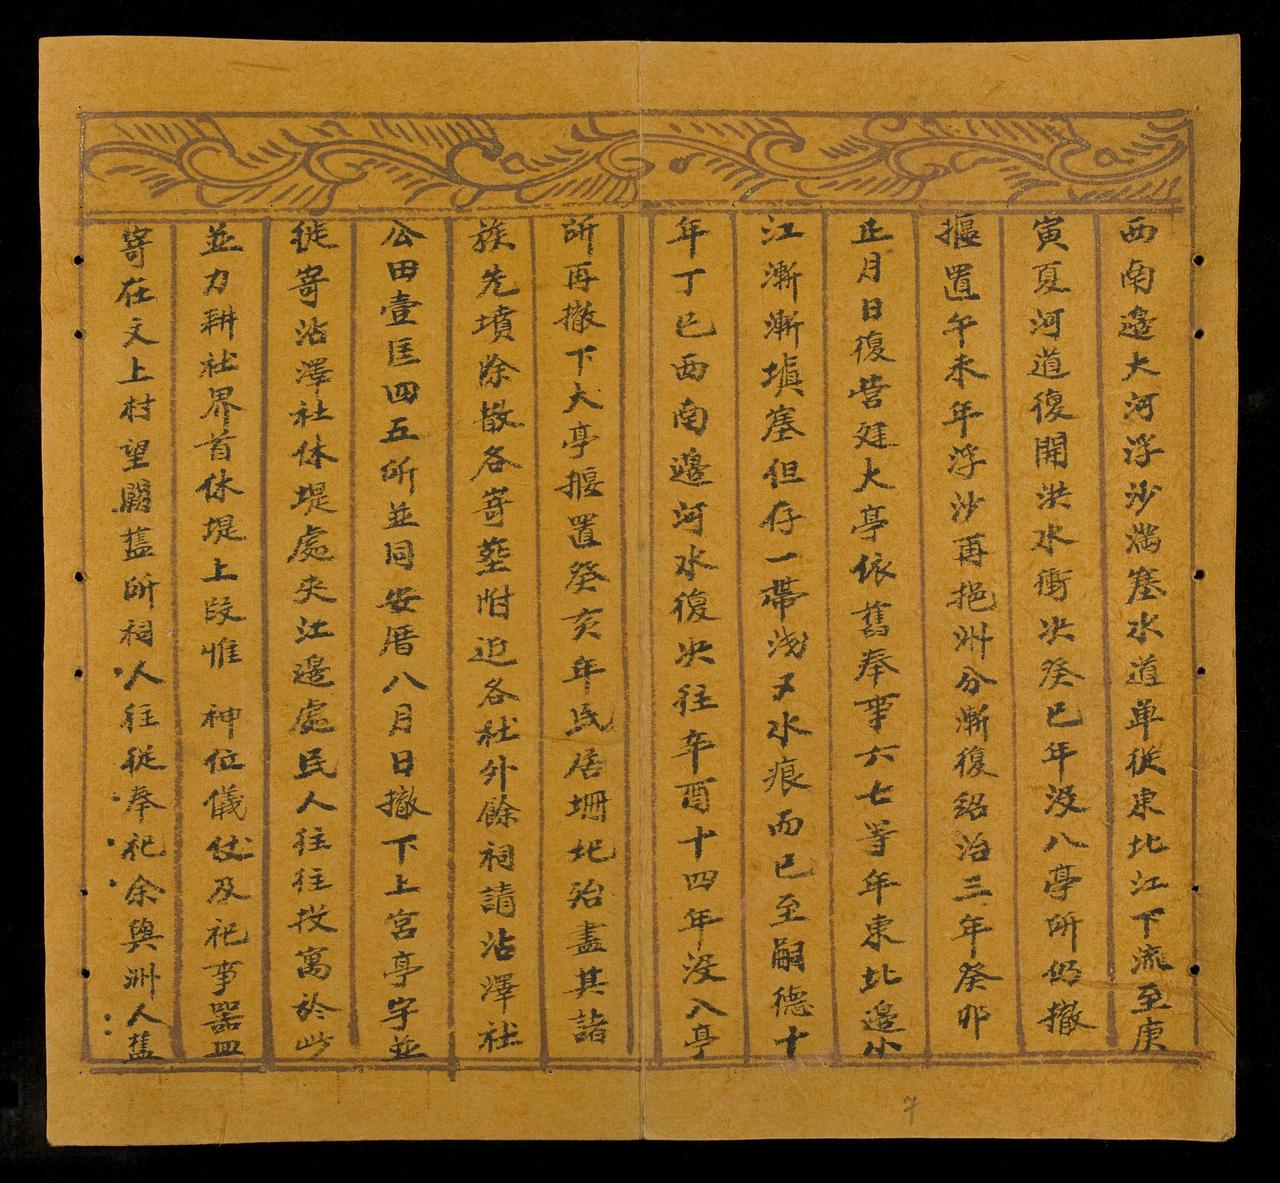 西南邊大河浮沙滿塞水道单從東北江下流至庚
寅夏河道復開洪水衝决癸巳年没八亭所仍撤
搌置午未年浮沙再挹洲分漸復紹治三年癸卯
正月日復营建大亭依舊奉事六七等年東北邊小
江漸漸塡塞但存一帶浅歹水痕而已至嗣德十
年丁巳西南邊河水復决往辛酉十四年没入亭
所再撤下大亭搌置癸亥年民居坍圯殆盡其諸
族先墳除散各寄塟附近各社外餘祠請沾澤社
公田壹匡四五所並同安厝八月日撤下上宮亭宇並
從寄沾澤社休堤處夹江邊處民人往往投寓於此
並力耕社界首休堤上段惟神位儀仗及祀事器皿
寄在文上村望闕舊所祠人往從奉祀余與洲人舊
7